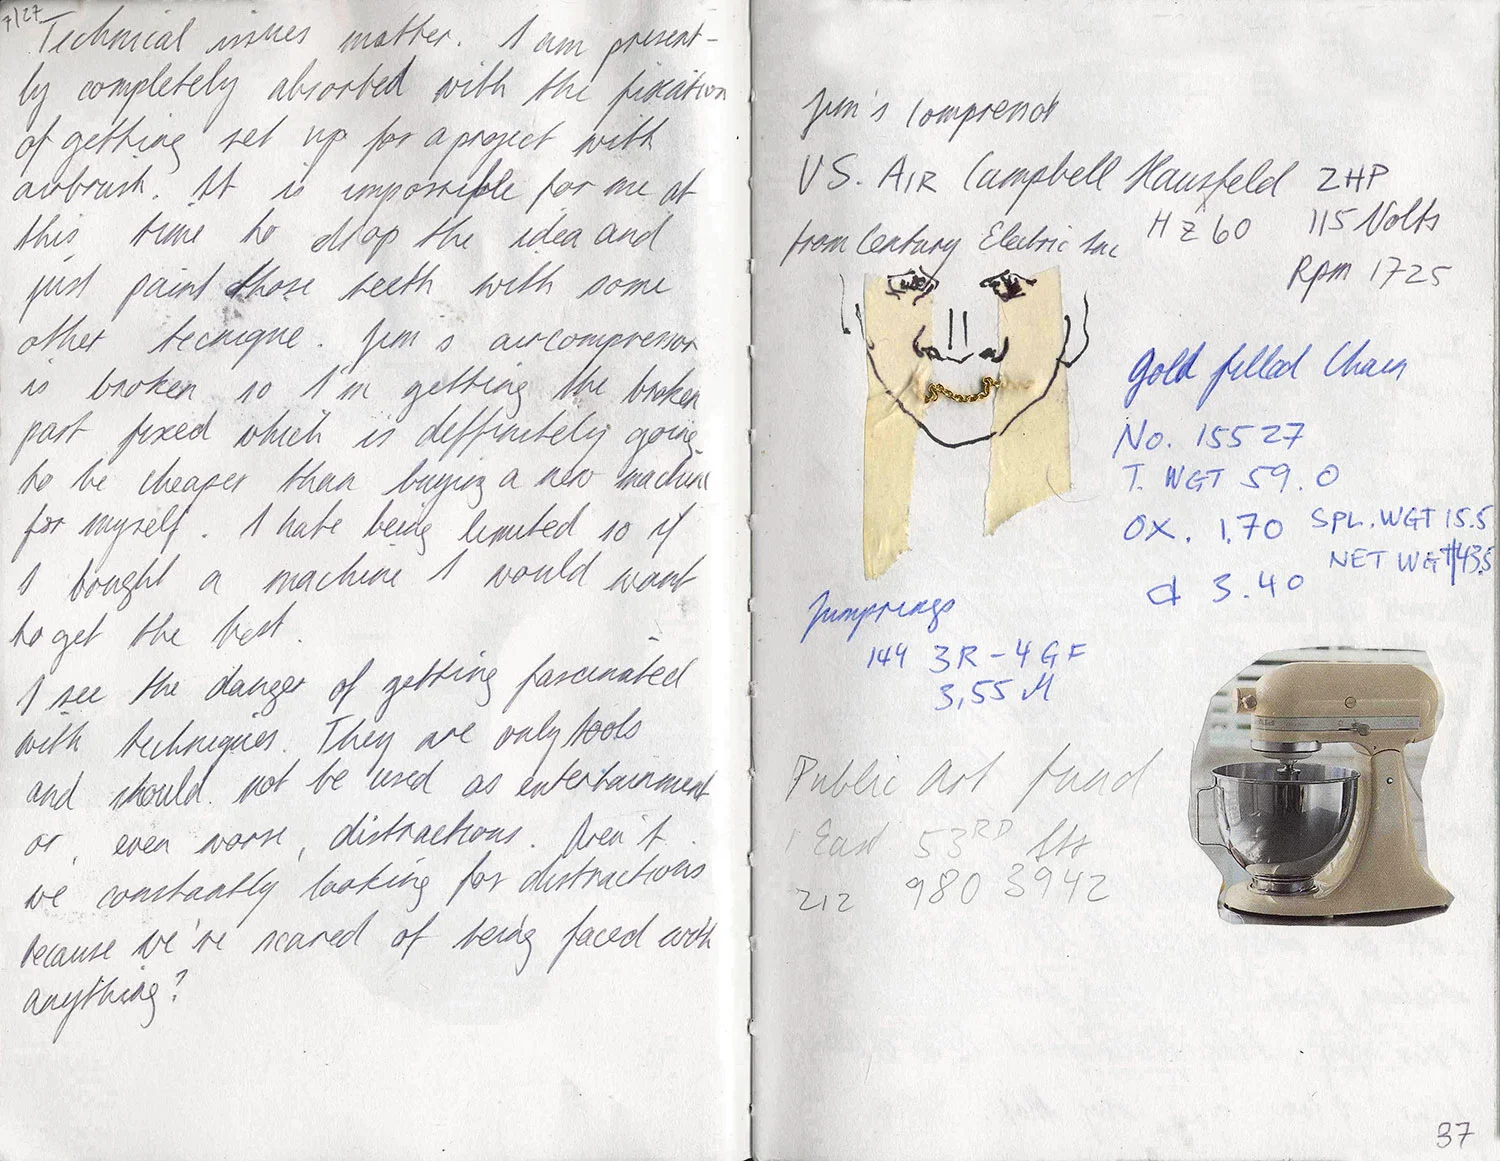 7/27
Technical issues matter. I am present-
ly completely absorbed with the fixation
of getting set up for a project with
airbrush. It is impossible for me at
this time to drop the idea and
just paint those teeth with some
other tecnique. Jim's aircompressor
is broken so I'm getting the broken
part fixed which is deffinitely going
to be cheaper than buying a new machine
for myself. I hate being limited so if
I bought a machine I would want
to get the best.
I see the danger of getting fascinated
with techniques. They are only tools
and should not be used as entertainment
or, even worse, distractions. Aren't
we constantly looking for distractions
because we're scared of being faced with
anything?
Jim's Compressor
US. AIR Campbell Hausfeld 2HP
from Century Electric Inc HZ 60 115 Volts
Rpm 1725
Gold filled Chain
No. 15527
T. WGT 59.0
OX. 1.70 SPL. WGT 15.5
NET WGT 43.5
3.40
Jumprings
144 3R-4GF
3,55 M
Public Art fund
1 East 53RD Str
212 980 3942
37